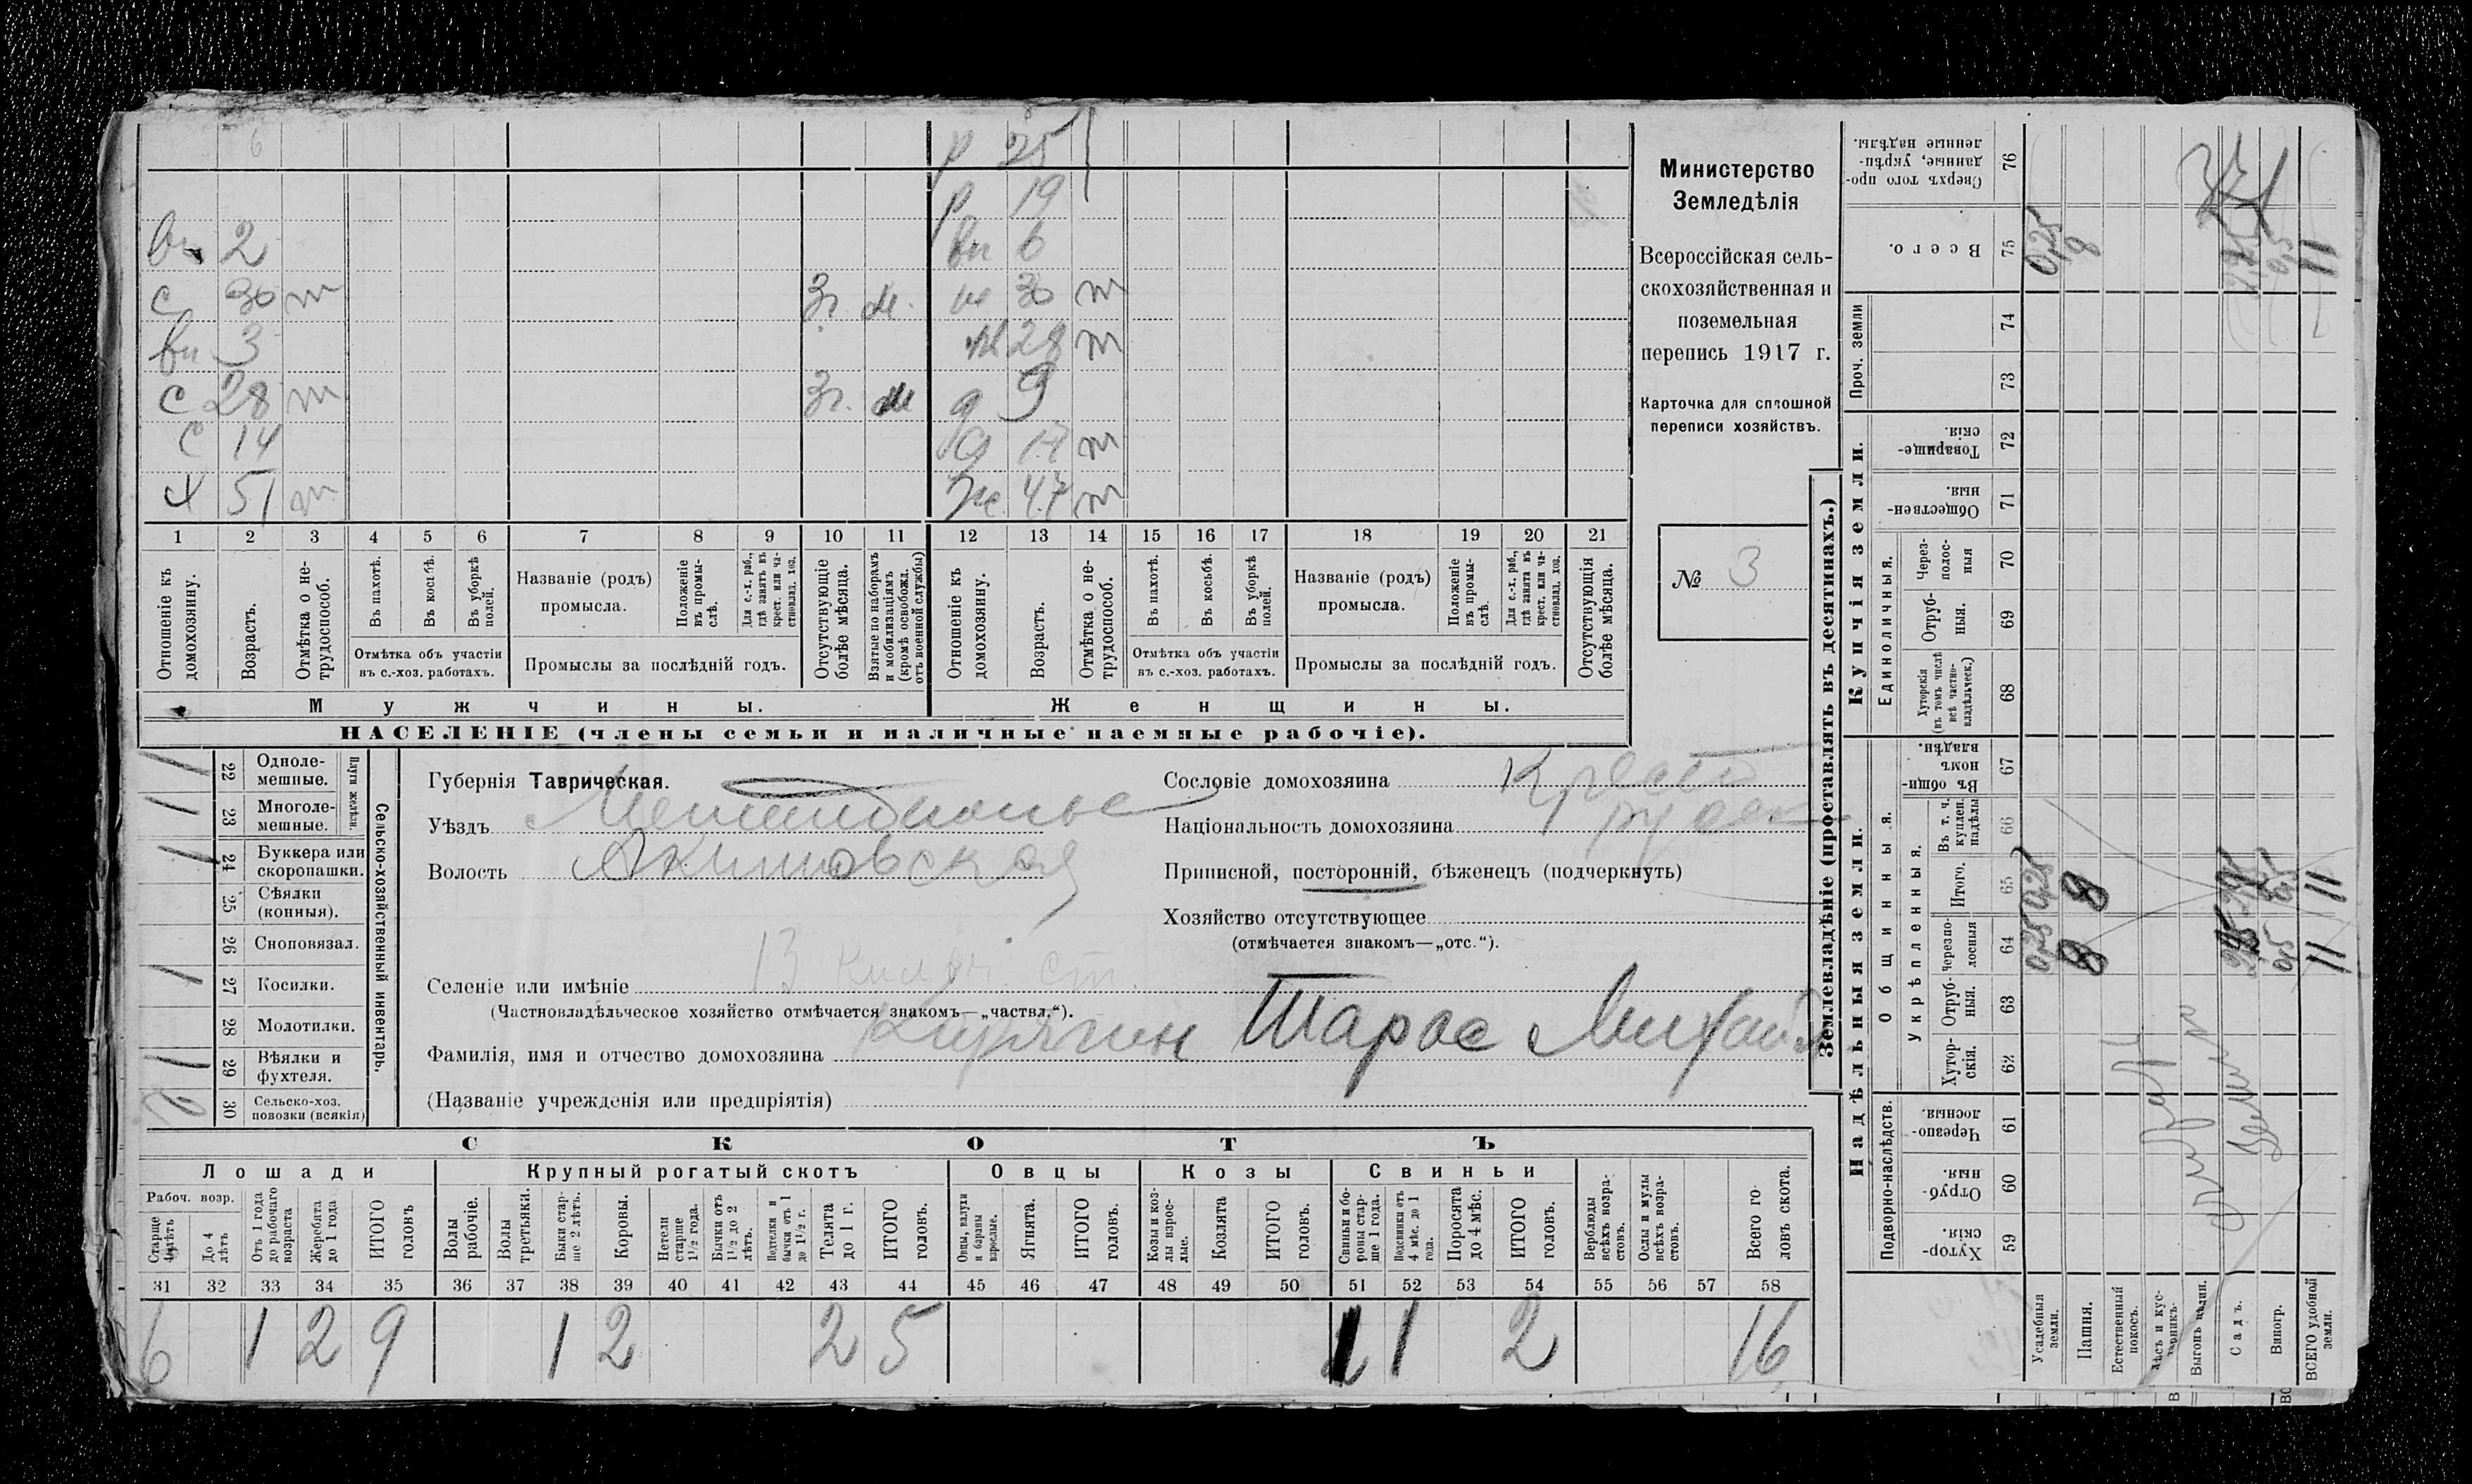 6 р 25
р 19
вн 2 вн 6
с 30 т 3г. м. н 30 т
вн 3 н 28 т
с 28 т 3г. м д 9
с 14 д 17 т
х 51 т ж 47 т
1 2 3 4 5 6 7 8 9 10 11 12 13 14 15 16 17 18 19 20 21
Отношеніе къ домохозяину.
Возрастъ.
Отмѣтка о нетрудоспособ.
Въ пахотѣ.
Въ косьбѣ.
Въ уборкѣ полей.
Отмѣтка объ участіи
въ с.-хоз. работахъ.
Названіе (родъ)
промысла.
Положеніе въ промыслѣ.
Для с.-х. раб., гдѣ занятъ въ крест. или частновлад. хоз.
Промыслы за послѣдній годъ.
Отсутствующіе болѣе мѣсяца.
Взятые по наборамъ и мобилизаціямъ (кромѣ освобожд. отъ военной службы)
Отношеніе къ домохозяину.
Возрастъ.
Отмѣтка о нетрудоспособ.
Въ пахотѣ.
Въ косьбѣ.
Въ уборкѣ полей.
Отмѣтка объ участіи
въ с.-хоз. работахъ.
Названіе (родъ)
промысла.
Положеніе въ промыслѣ.
Для с.-х. раб., гдѣ занята въ крест. или частновлад. хоз.
Промыслы за послѣдній годъ.
Отсутствующія болѣе мѣсяца.
Мужчины. Женщины.
НАСЕЛЕНІЕ (члены семьи и наличные наемные рабочіе).
Министерство
Земледѣлія
Всероссійская сель-
скохозяйственная и
поземельная
перепись 1917 г.
Карточка для сплошной
переписи хозяйствъ.
№ 3
1 22 Однолемешные.
1 23 Многолемешные.
Плуги желѣзн.
1 24 Буккера или скоропашки.
25 Сѣялки (конныя).
26 Сноповязал.
1 27 Косилки.
28 Молотилки.
1 29 Вѣялки и фухтеля.
30 Сельско-хоз. повозки (всякія)
Сельско-хозяйственный инвентарь.
Губернія Таврическая.
Уѣздъ
Волость Акимовская
Селеніе или имѣніе
(Частновладѣльческое хозяйство отмѣчается знакомъ—„частвл.“).
Фамилія, имя и отчество домохозяина Тарас Михайл
(Названіе учрежденія или предпріятія)
Сословіе домохозяина Крест
Національность домохозяина русск
Приписной, посторонній, бѣженецъ (подчеркнуть)
Хозяйство отсутствующее
(отмѣчается знакомъ—„отс.“).
СКОТЪ
Лошади Крупный рогатый скотъ Овцы Козы Свиньи
Рабоч. возр.
Старше 4 лѣтъ
До 4 лѣтъ
Отъ 1 года до рабочаго возраста
Жеребята до 1 года
ИТОГО головъ
Волы рабочіе.
Волы третьяки.
Быки старше 2 лѣтъ.
Коровы.
Нетели старше 1½ года.
Бычки отъ 1½ до 2 лѣтъ.
Подтелки и бычки отъ 1 до 1½ г.
Телята до 1 г.
ИТОГО головъ.
Овцы, валухи и бараны взрослые.
Ягнята.
ИТОГО головъ.
Козы и козлы взрослые.
Козлята
ИТОГО головъ.
Свиньи и боровы старше 1 года.
Подсвинки отъ 4 мѣс. до 1 года.
Поросята до 4 мѣс.
ИТОГО головъ.
Верблюды всѣхъ возрастовъ.
Ослы и мулы всѣхъ возрастовъ.
Всего головъ скота.
31 32 33 34 35 36 37 38 39 40 41 42 43 44 45 46 47 48 49 50 51 52 53 54 55 56 57 58
6 1 2 9 1 2 2 5 1 1 2 16
Землевладѣніе (проставлять въ десятинахъ.)
Надѣльныя земли.
Подворно-наслѣдств.
Хуторскія 59
Отрубныя 60
Черезполосныя. 61
Общинныя.
Укрѣпленныя.
Хуторскія. 62
Отрубныя. 63
Черезполосныя 64
Итого. 65
Въ т. ч. куплен. надѣлы 66
Въ общинномъ владѣн. 67
Купчія земли.
Единоличныя.
Хуторскія (въ томъ числѣ всѣ частновладѣльческ.) 68
Отрубныя. 69
Черезполосныя 70
Общественныя. 71
Товарищескія. 72
Проч. земли
73
74
Всего. 75
Сверхъ того проданные, укрѣпленные надѣлы. 76
Усадебныя земли. 0,25 0,25 0,25
Пашня. 8 8 9
Естественный покосъ.
Лѣсъ и кустарникъ.
Выгонъ цѣлин.
Садъ.
Виногр. 0,5 0,5 0,5
ВСЕГО удобной земли. 11 11 11